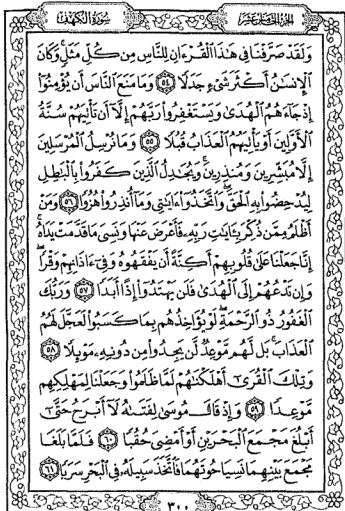 سورة الكهف
الجزء الخامس عشر
ولقد صرفنا في هذا القرءان للناس من كل مثل وكان
الإنسان أكثر شيء جدلا ٥٤ وما منع الناس أن يؤمنوا
إذ جاءهم الهدى ويستغفروا ربهم إلا أن تأتيهم سنة
الأولين أو يأتيهم العذاب قبلا ٥٥ وما نرسل المرسلين
إلا مبشرين ومنذرين ويجدل الذين كفروا بالبطل
ليدحضوا به الحق واتخذوا ءايتي وما أنذروا هزوا ٥٦ ومن
أظلم ممن ذكر بءايت ربه فأعرض عنها ونسي ما قدمت يداه
إنا جعلنا على قلوبهم أكنة أن يفقهوه وفي ءاذانهم وقرا
وإن تدعهم إلى الهدى فلن يهتدوا إذا أبدا ٥٧ وربك
الغفور ذو الرحمة لو يؤاخذهم بما كسبوا لعجل لهم
العذاب بل لهم موعد لن يجدوا من دونه موئلا ٥٨
وتلك القرى أهلكنهم لما ظلموا وجعلنا لمهلكهم
موعدا ٥٩ وإذ قال موسى لفتىه لا أبرح حتى
أبلغ مجمع البحرين أو أمضي حقبا ٦٠ فلما بلغا
مجمع بينهما نسيا حوتهما فاتخذ سبيله في البحر سربا ٦١
٣٠٠